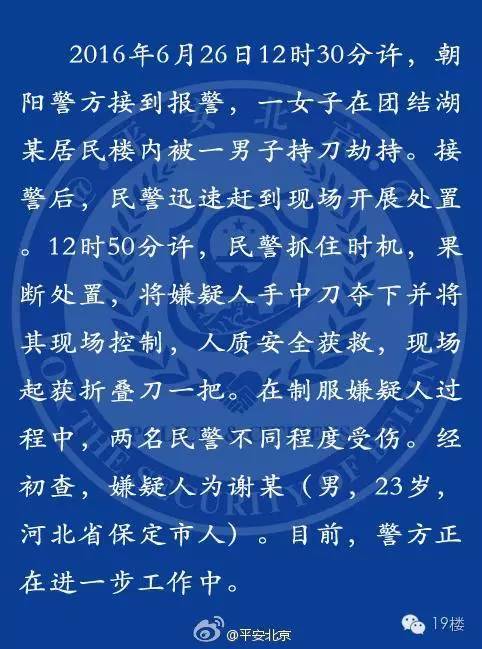 2016年6月26日12时30分许，朝
阳警方接到报警，一女子在团结湖
某居民楼内被一男子持刀劫持。接
警后，民警迅速赶到现场开展处置
。12时50分许，民警抓住时机，果
断处置，将嫌疑人手中刀夺下并将
其现场控制，人质安全获救，现场
起获折叠刀一把。在制服嫌疑人过
程中，两名民警不同程度受伤。经
初查，嫌疑人为谢某（男，23岁，
河北省保定市人）。目前，警方正
在进一步工作中。
@平安北京
19楼